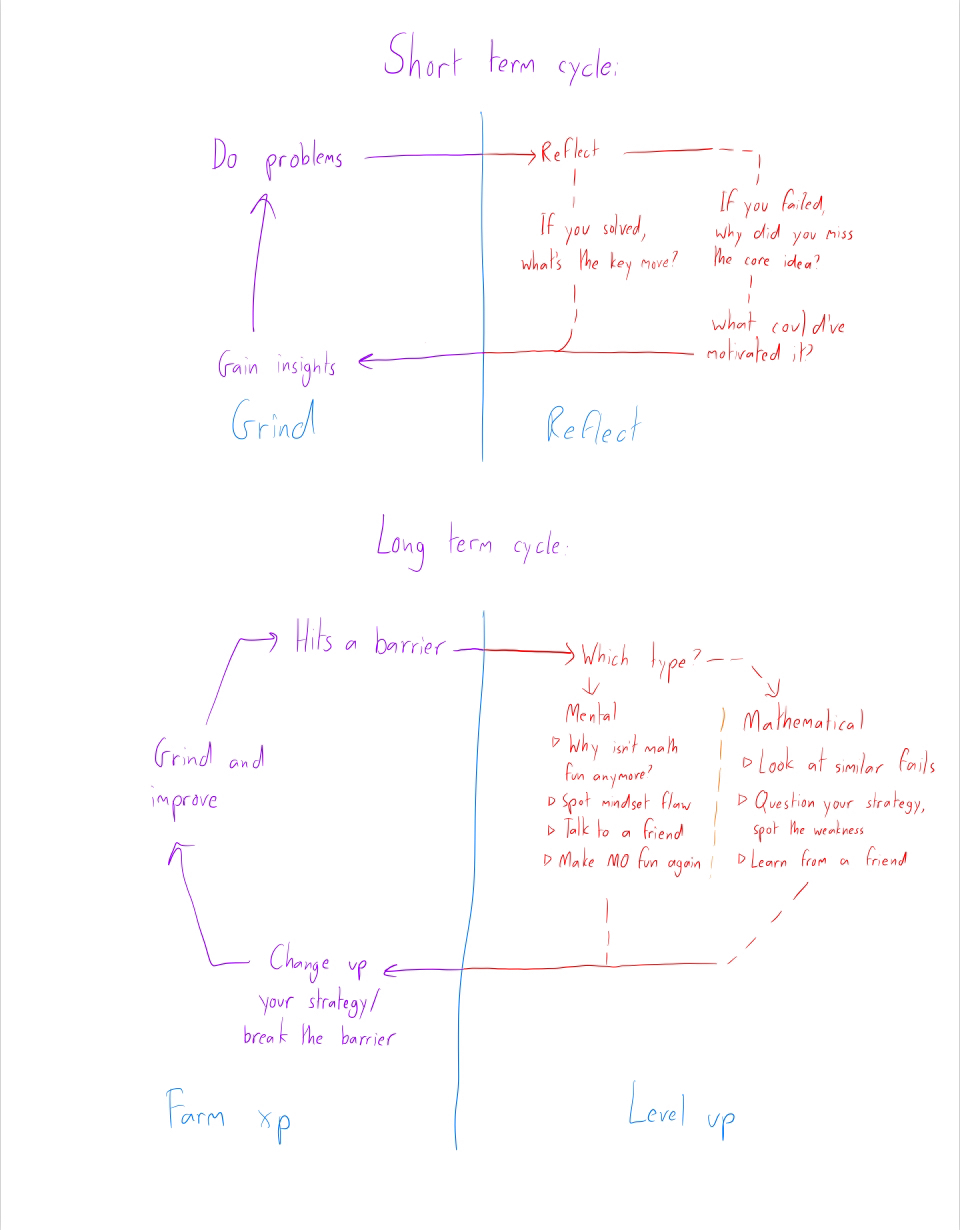 Short term cycle:
Do problems
Reflect
If you solved,
what's the key move?
If you failed,
why did you miss
the core idea?
what could've
motivated it?
Gain insights
Grind
Reflect
Long term cycle:
Hits a barrier
Which type?
Mental
▷ Why isn't math
fun anymore?
▷ Spot mindset flaw
▷ Talk to a friend
▷ Make MO fun again
Mathematical
▷ Look at similar fails
▷ Question your strategy,
spot the weakness
▷ Learn from a friend
Grind and
improve
Change up
your strategy/
break the barrier
Farm xp
Level up